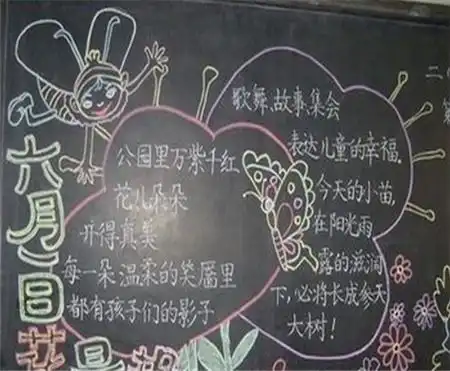 六月一日
公园里万紫千红
花儿朵朵
开得真美
每一朵温柔的笑靥里
都有孩子们的影子
歌舞、故事、集会
表达儿童的幸福.
今天的小苗,
在阳光雨
露的滋润
下,必将长成参天
大树!
二